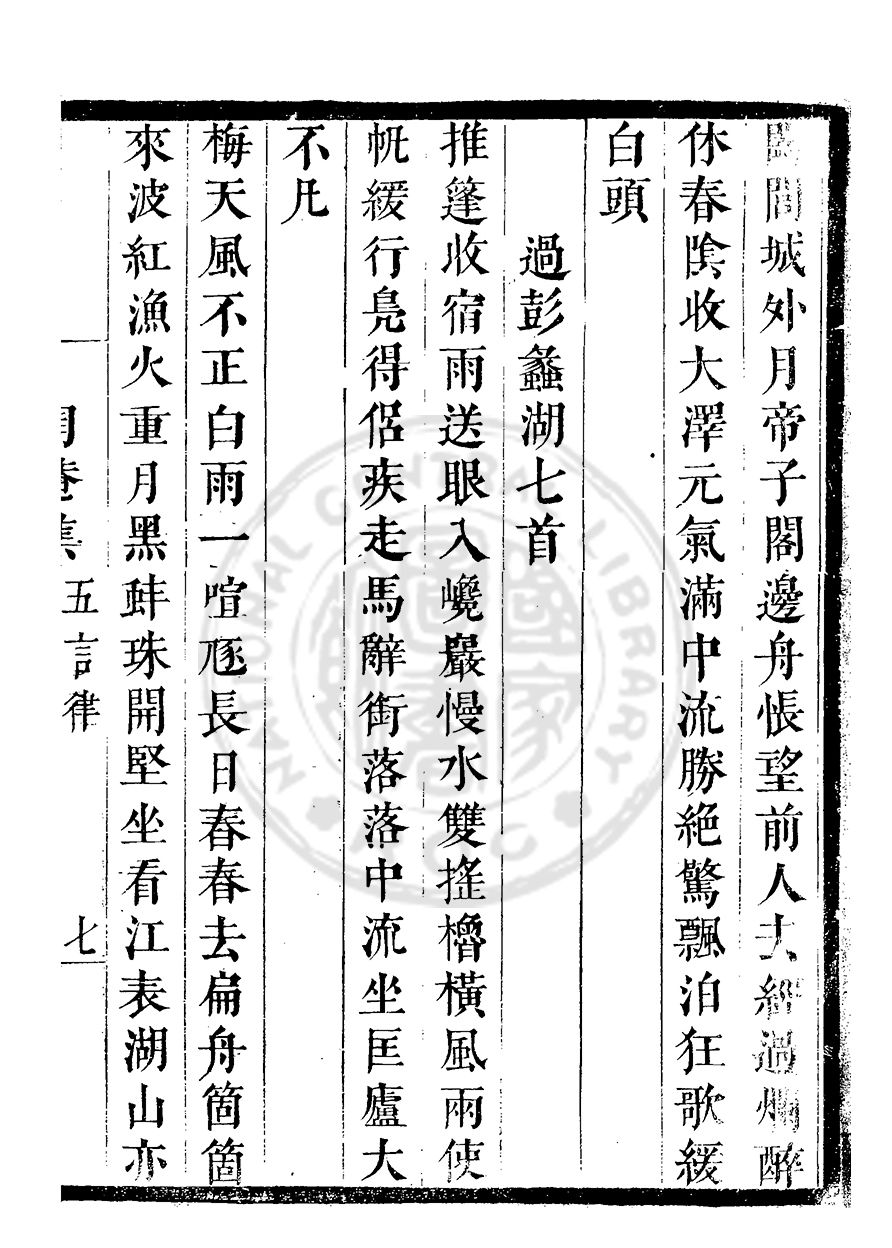 城外月帝子閣邊舟悵望前人去經過爛醉
休春陰收大澤元氣滿中流勝絶驚飄泊狂歌緩
白頭
過彭蠡湖七首
推篷收宿雨送眼入巉巖慢水雙搖櫓橫風兩使
帆緩行鳧得侶疾走馬辭銜落落中流坐匡廬大
不凡
梅天風不正白雨一喧豗長日春春去扁舟箇箇
來波紅漁火重月黑蚌珠開堅坐看江表湖山亦
菴集
五言律
七
NATIONAL CENTRAL LIBRARY
R.O.C.